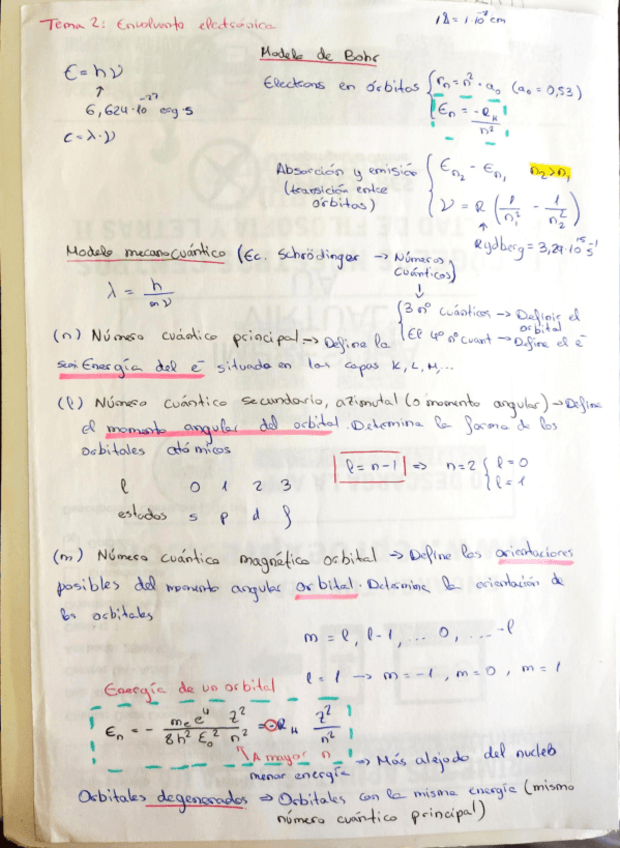 Tema 2: Envolvente electrónica
1Å = 1·10⁻⁸ cm
Modelo de Bohr
E = hν
↑
6,624·10⁻²⁷ erg·s
c = λ·ν
Electrons en órbitas { rₙ = n²·a₀ (a₀ = 0,53)
Eₙ = -R_H / n²
Absorción y emisión { Eₙ₂ - Eₙ₁ n₂>n₁
(transición entre órbitas)
ν = R (1/n₁² - 1/n₂²)
↑
Rydberg = 3,29·10¹⁵ s⁻¹
Modelo mecanocuántico (Ec. Schrödinger → Números cuánticos)
λ = h / mν
↓
{ 3 nº cuánticos → Definir el orbital
El 4º nº cuant → Define el e⁻
(n) Número cuántico principal → Define la
Energía del e⁻ situado en las capas K, L, M,...
(l) Número cuántico secundario, azimutal (o momento angular) → Define
el momento angular del orbital. Determina la forma de los
orbitales atómicos
l = n-1 ⇒ n=2 { l=0
l=1
l 0 1 2 3
estados s p d f
(m) Número cuántico magnético orbital → Define las orientaciones
posibles del momento angular orbital. Determina la orientación de
los orbitales
m = l, l-1, ... 0, ... -l
l = 1 → m=-1, m=0, m=1
Energía de un orbital
Eₙ = - mₑe⁴ / 8h²ε₀² Z²/n² = -R_H Z²/n²
A mayor n
menor energía ⇒ Más alejado del nucleo
Orbitales degenerados ⇒ Orbitales con la misma energía (mismo
número cuántico principal)